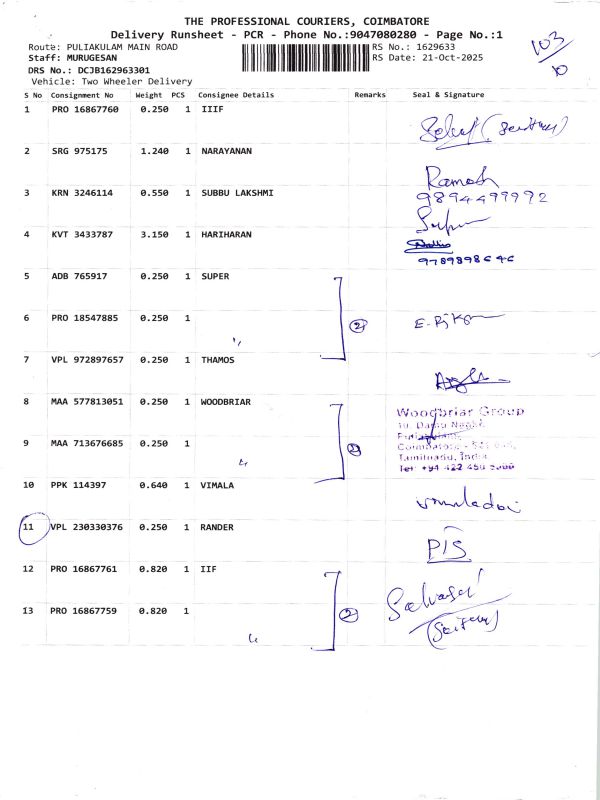 THE PROFESSIONAL COURIERS, COIMBATORE
Delivery Runsheet - PCR - Phone No.:9047080280 - Page No.:1
Route: PULIAKULAM MAIN ROAD RS No.: 1629633
Staff: MURUGESAN RS Date: 21-Oct-2025
DRS No.: DCJB162963301
Vehicle: Two Wheeler Delivery
103
10
S No Consignment No Weight PCS Consignee Details Remarks Seal & Signature
1 PRO 16867760 0.250 1 IIIF
2 SRG 975175 1.240 1 NARAYANAN
Ramesh
3 KRN 3246114 0.550 1 SUBBU LAKSHMI
9894499992
4 KVT 3433787 3.150 1 HARIHARAN
9789898646
5 ADB 765917 0.250 1 SUPER
6 PRO 18547885 0.250 1 2
7 VPL 972897657 0.250 1 THAMOS
8 MAA 577813051 0.250 1 WOODBRIAR
Woodbriar Group
9 MAA 713676685 0.250 1 2
Tamilnadu, India
10 PPK 114397 0.640 1 VIMALA
11 VPL 230330376 0.250 1 RANDER
12 PRO 16867761 0.820 1 IIF
13 PRO 16867759 0.820 1 2